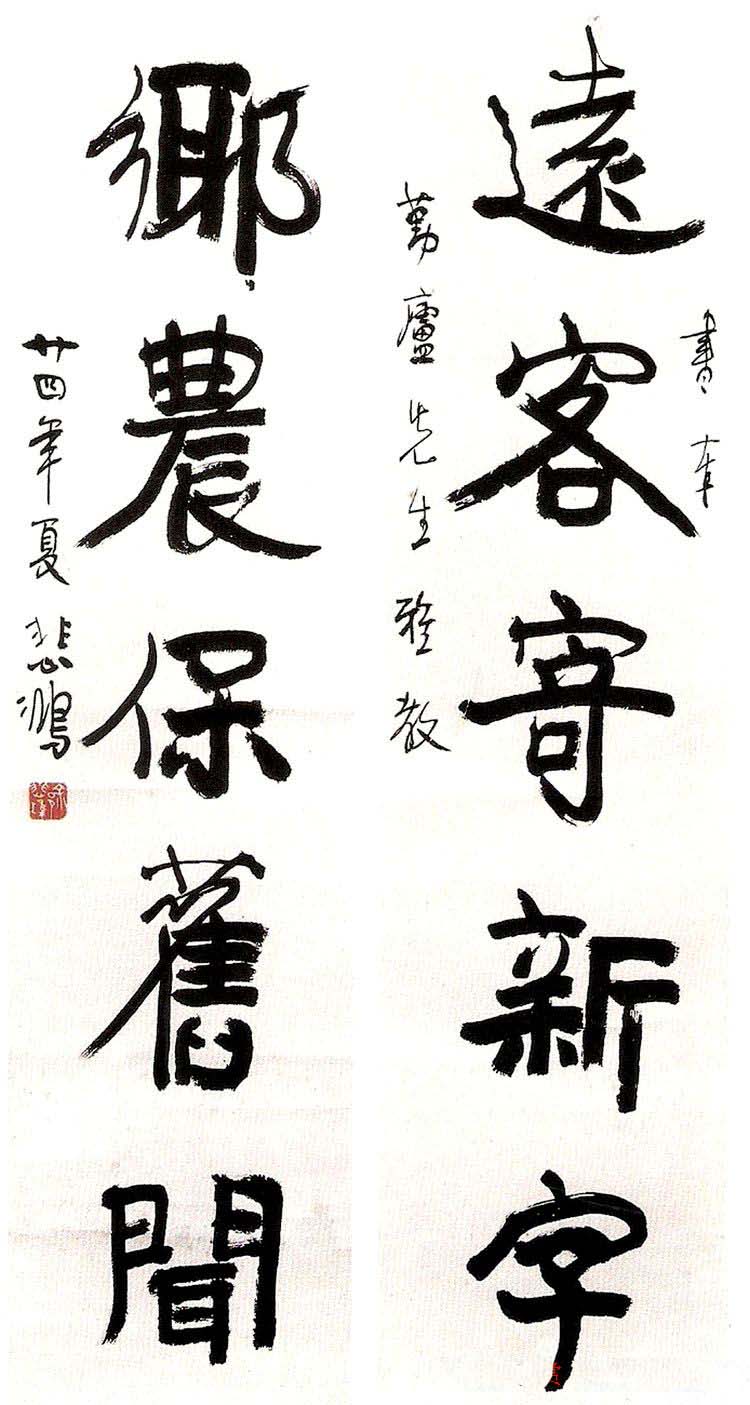 書奉
遠客寄新字
勤廬先生雅教
鄉農保舊聞
廿四年夏悲鴻